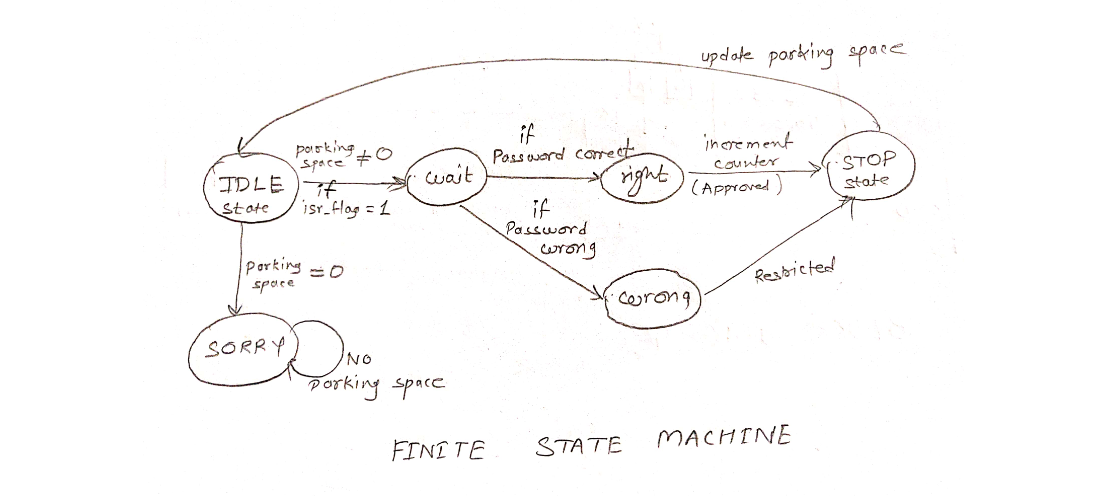 update parking space
parking
space ≠ 0
if
isr_flag = 1
IDLE
State
wait
if
Password correct
right
increment
counter
(Approved)
STOP
state
if
Password
wrong
wrong
Restricted
Parking
space = 0
SORRY
NO
parking space
FINITE STATE MACHINE